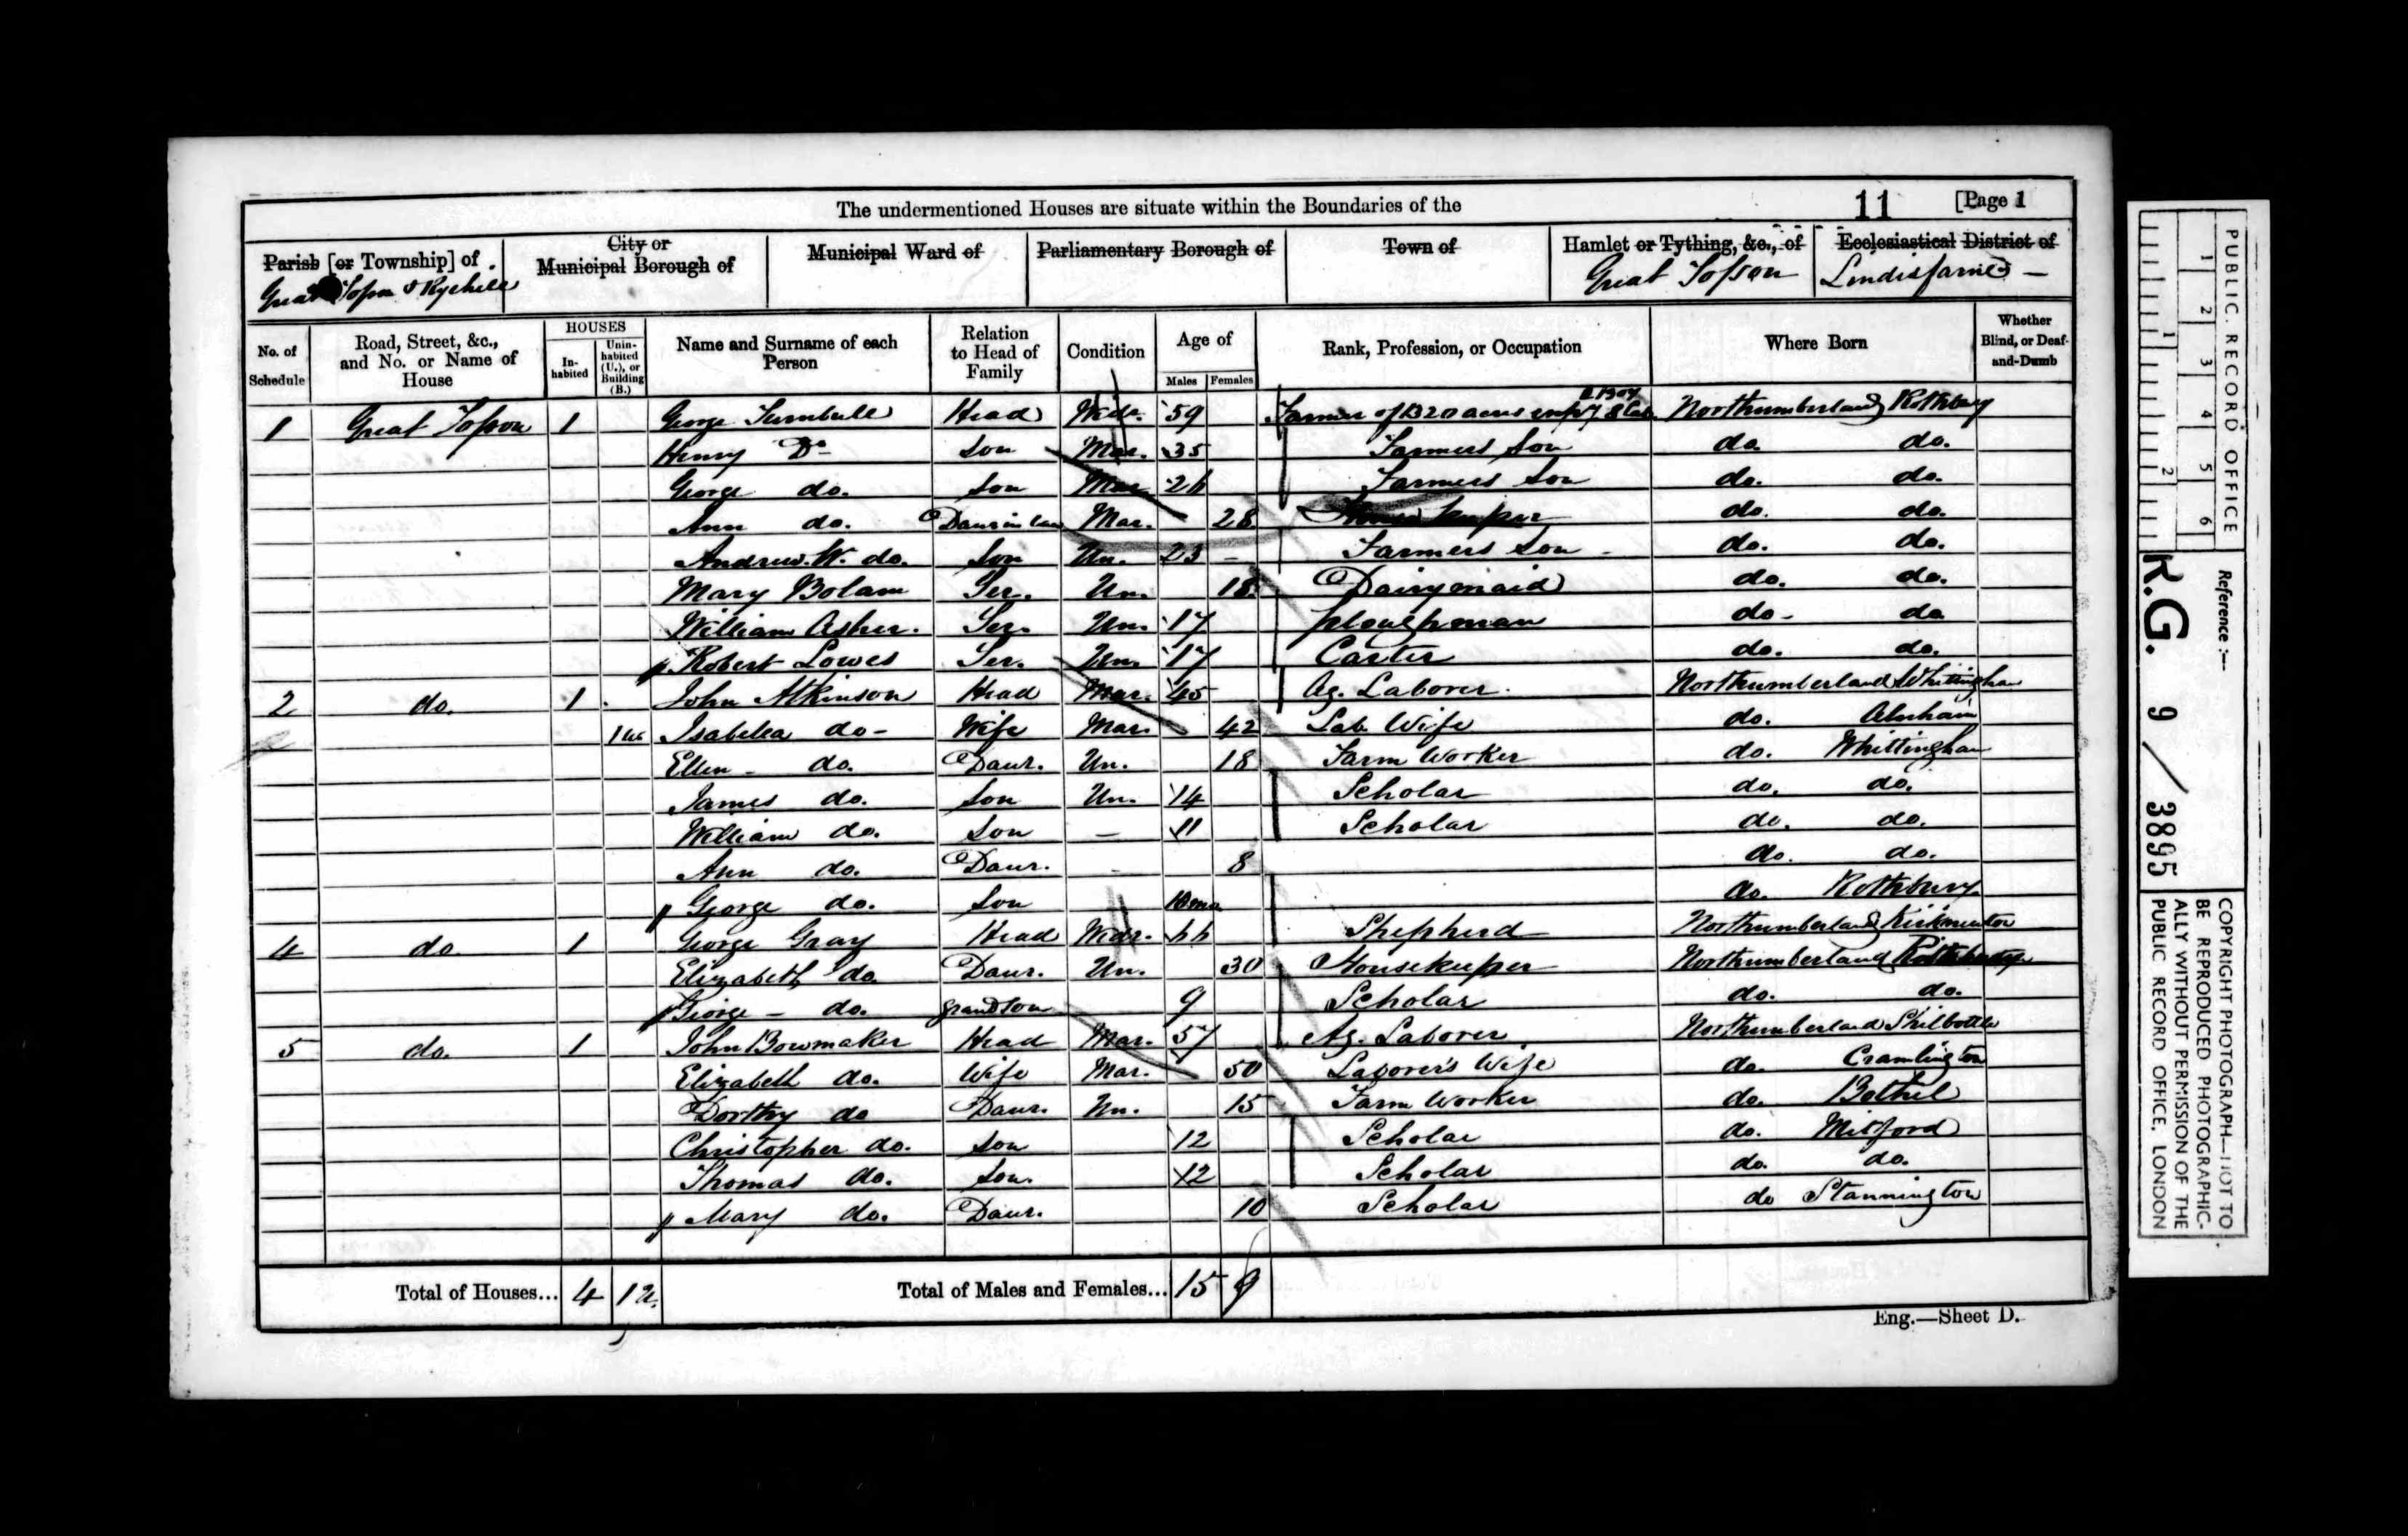 The undermentioned Houses are situate within the Boundaries of the 11 [Page 1
Parish [or Township] of City or Municipal Borough of Municipal Ward of Parliamentary Borough of Town of Hamlet or Tything, &c., of Ecclesiastical District of
Great Tosson & Ryehill Great Tosson Lindisfarne
No. of Schedule Road, Street, &c., and No. or Name of House HOUSES In-habited Unin-habited (U.), or Building (B.) Name and Surname of each Person Relation to Head of Family Condition Age of Males Females Rank, Profession, or Occupation Where Born Whether Blind, or Deaf-and-Dumb
1 Great Tosson 1 George Turnbull Head Widr. 59 Farmer of 1320 acres 8 Lab. Northumberland Rothbury
Henry Do Son Mar. 35 Farmers Son do. do.
George do. Son Mar 26 Farmers Son do. do.
Ann do. Daur in law Mar. 28 House keeper do. do.
Andrew W. do. Son Un. 23 Farmers Son do. do.
Mary Bolam Ser. Un. 18 Dairymaid do. do.
William Asher. Ser. Un. 17 Ploughman do. do
Robert Lowes Ser. Un. 17 Carter do. do.
2 do. 1 John Atkinson Head Mar. 45 Ag. Laborer. Northumberland Whittingham
1 U Isabella do Wife Mar. 42 Lab. Wife do. Alnham
Ellen do. Daur. Un. 18 Farm Worker do. Whittingham
James do. Son Un. 14 Scholar do. do.
William do. Son 11 Scholar do. do.
Ann do. Daur. 8 do. do.
George do. Son 10 mo do. Rothbury
4 do. 1 George Gray Head Widr. 66 Shepherd Northumberland Kirknewton
Elizabeth do. Daur. Un. 30 Housekeeper Northumberland Rothbury
George do. grandson 9 Scholar do. do.
5 do. 1 John Bowmaker Head Mar. 57 Ag. Laborer Northumberland Shilbottle
Elizabeth do. Wife Mar. 50 Laborer's Wife do. Cramlington
Dorthy do Daur. Un. 15 Farm Worker do. Bothel
Christopher do. Son 12 Scholar do. Mitford
Thomas do. Son. 12 Scholar do. do.
Mary do. Daur. 10 Scholar do Stannington
Total of Houses... 4 1 U. Total of Males and Females... 15 9
Eng.—Sheet D.
PUBLIC RECORD OFFICE
1 2 3 4 5 6
1 2
Reference :—
R.G. 9 / 3895
COPYRIGHT PHOTOGRAPH—NOT TO
BE REPRODUCED PHOTOGRAPHIC-
ALLY WITHOUT PERMISSION OF THE
PUBLIC RECORD OFFICE, LONDON